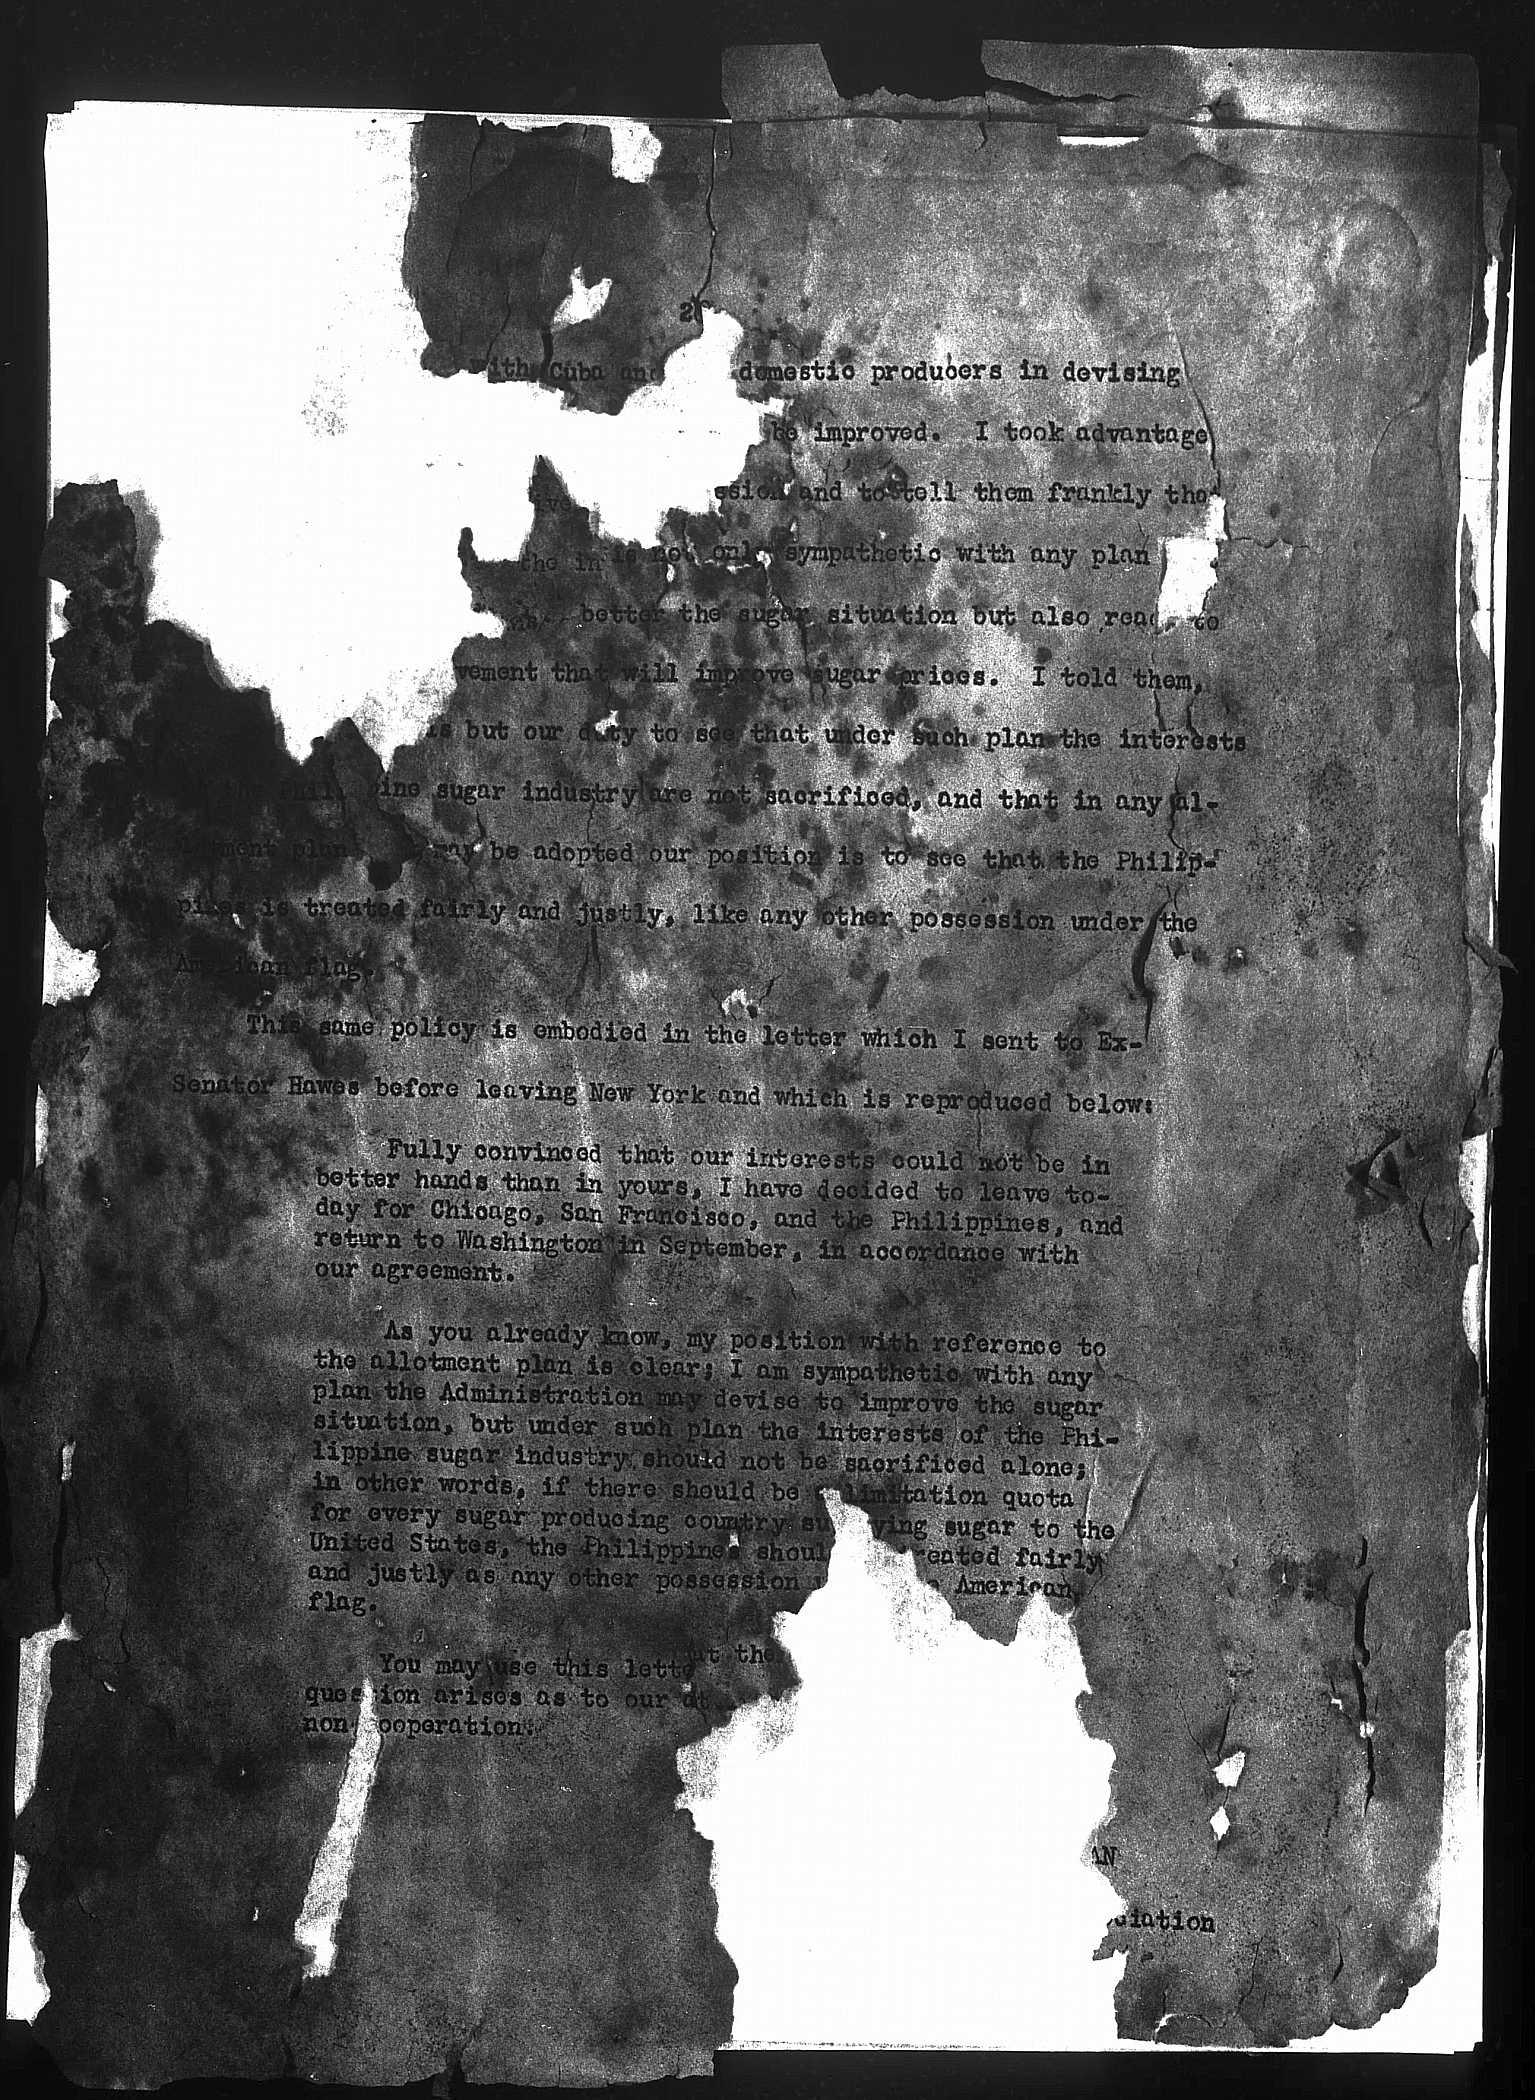 2
with Cuba and domestic producers in devising
be improved. I took advantage
and to tell them frankly that
the in is not only sympathetic with any plan
better the sugar situation but also ready to
vement that will improve sugar prices. I told them,
is but our duty to see that under such plan the interests
pine sugar industry are not sacrificed, and that in any al-
ment plan may be adopted our position is to see that the Philip-
pines is treated fairly and justly, like any other possession under the
American flag.
This same policy is embodied in the letter which I sent to Ex-
Senator Hawes before leaving New York and which is reproduced below:
Fully convinced that our interests could not be in
better hands than in yours, I have decided to leave to-
day for Chicago, San Francisco, and the Philippines, and
return to Washington in September, in accordance with
our agreement.
As you already know, my position with reference to
the allotment plan is clear; I am sympathetic with any
plan the Administration may devise to improve the sugar
situation, but under such plan the interests of the Phi-
lippine sugar industry should not be sacrificed alone;
in other words, if there should be limitation quota
for every sugar producing country su ying sugar to the
United States, the Philippines shoul reated fairly
and justly as any other possession American
flag.
You may use this lette at the
question arises as to our at
non cooperation.
AN
ciation